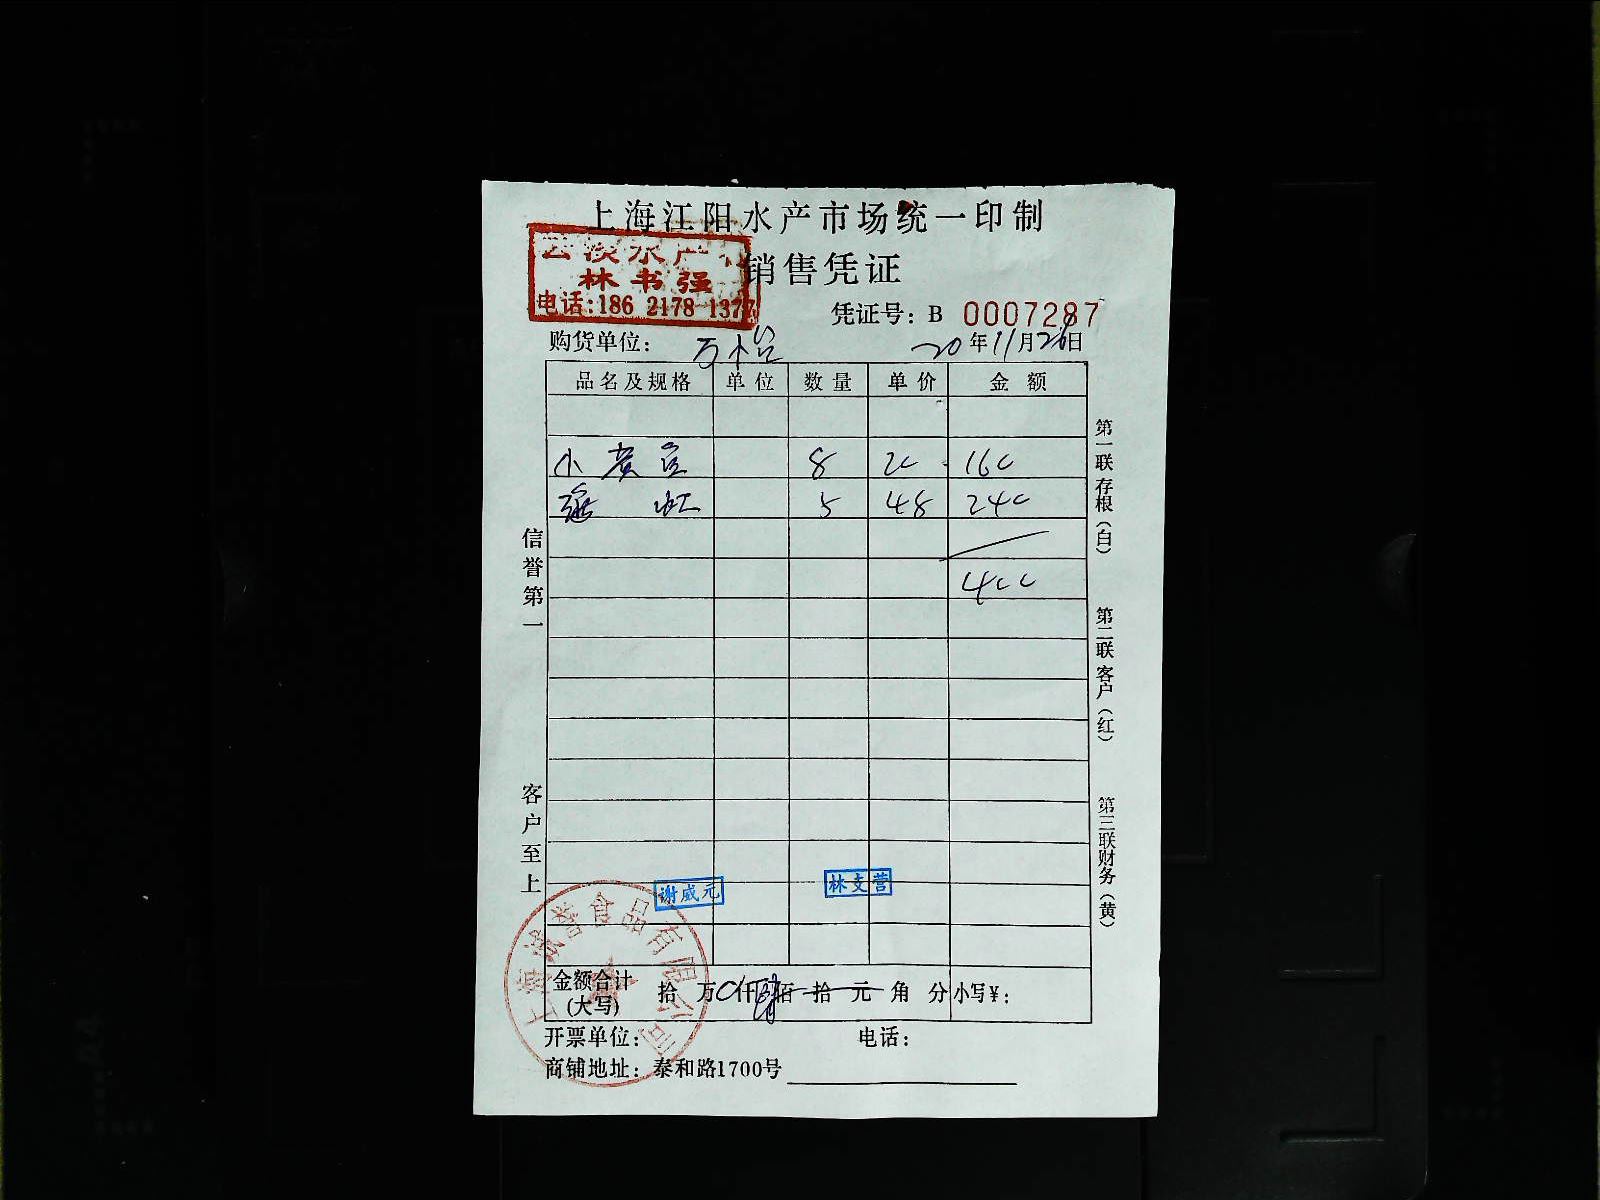 上海江阳水产市场统一印制
销售凭证
林书强
电话:186 2178 137
凭证号: B 0007287
购货单位: 万怡 20年11月26日
品名及规格 单位 数量 单价 金额
小黄 8 20 160
虾 5 48 240
400
信誉第一
客户至上
第一联存根(白)
第二联客户(红)
第三联财务(黄)
谢威元
林支营
上海诚誉食品有限公司
金额合计(大写) 拾 万0仟肆佰拾元角分 小写¥:
开票单位: 电话:
商铺地址: 泰和路1700号